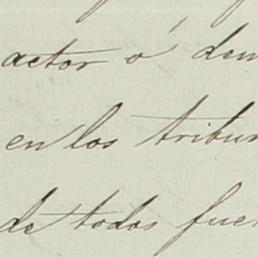 actor ó dem
en los tribun
de todos fuer